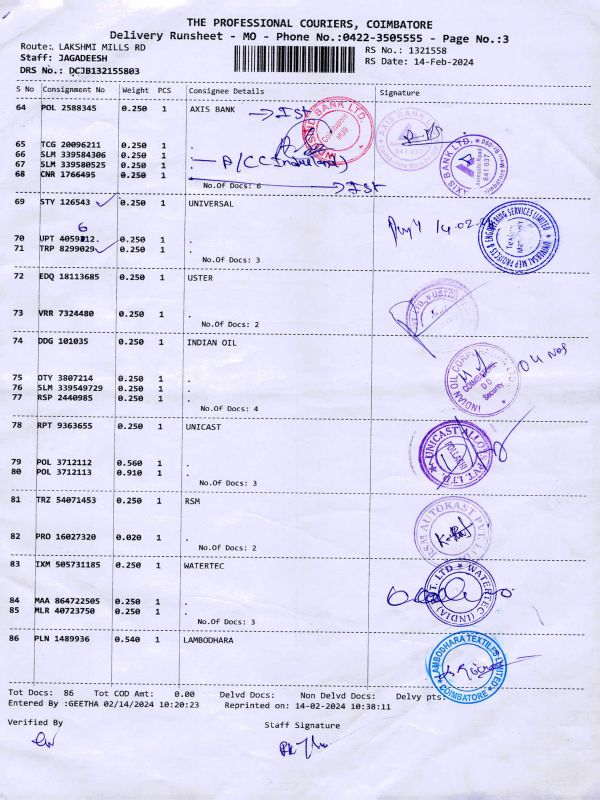 THE PROFESSIONAL COURIERS, COIMBATORE
Delivery Runsheet - MO - Phone No.:0422-3505555 - Page No.:3
Route: LAKSHMI MILLS RD RS No.: 1321558
Staff: JAGADEESH RS Date: 14-Feb-2024
DRS No.: DCJB132155803
S No Consignment No Weight PCS Consignee Details Signature
64 POL 2588345 0.250 1 AXIS BANK → Ist
65 TCG 20096211 0.250 1 .
66 SLM 339584306 0.250 1 .
67 SLM 339580525 0.250 1 .
68 CNR 1766495 0.250 1 .
No.Of Docs: 6 → Ist
AXIS BANK LTD.
69 STY 126543 0.250 1 UNIVERSAL
14-02-
6
70 UPT 4059 12. 0.250 1 .
71 TRP 8299029 0.250 1 .
No.Of Docs: 3
UNIVERSAL MEP PROJECTS & ENGINEERING SERVICES LIMITED
72 EDQ 18113685 0.250 1 USTER
73 VRR 7324480 0.250 1 .
No.Of Docs: 2
74 DDG 101035 0.250 1 INDIAN OIL
04 Nos
75 DTY 3807214 0.250 1 .
76 SLM 339549729 0.250 1 .
77 RSP 2440985 0.250 1 .
No.Of Docs: 4
INDIAN OIL
Security
78 RPT 9363655 0.250 1 UNICAST
79 POL 3712112 0.560 1 .
80 POL 3712113 0.910 1 .
No.Of Docs: 3
UNICAST ALLOY PVT. LTD.
81 TRZ 54071453 0.250 1 RSM
82 PRO 16027320 0.020 1 .
No.Of Docs: 2
RSM AUTOKAST PVT. LTD.
83 IXM 505731185 0.250 1 WATERTEC
84 MAA 864722505 0.250 1 .
85 MLR 40723750 0.250 1 .
No.Of Docs: 3
WATERTEC (INDIA) PVT. LTD
86 PLN 1489936 0.540 1 LAMBODHARA
LAMBODHARA TEXTILES LIMITED
COIMBATORE
Tot Docs: 86 Tot COD Amt: 0.00 Delvd Docs: Non Delvd Docs: Delvy pts:
Entered By :GEETHA 02/14/2024 10:20:23 Reprinted on: 14-02-2024 10:38:11
Verified By Staff Signature